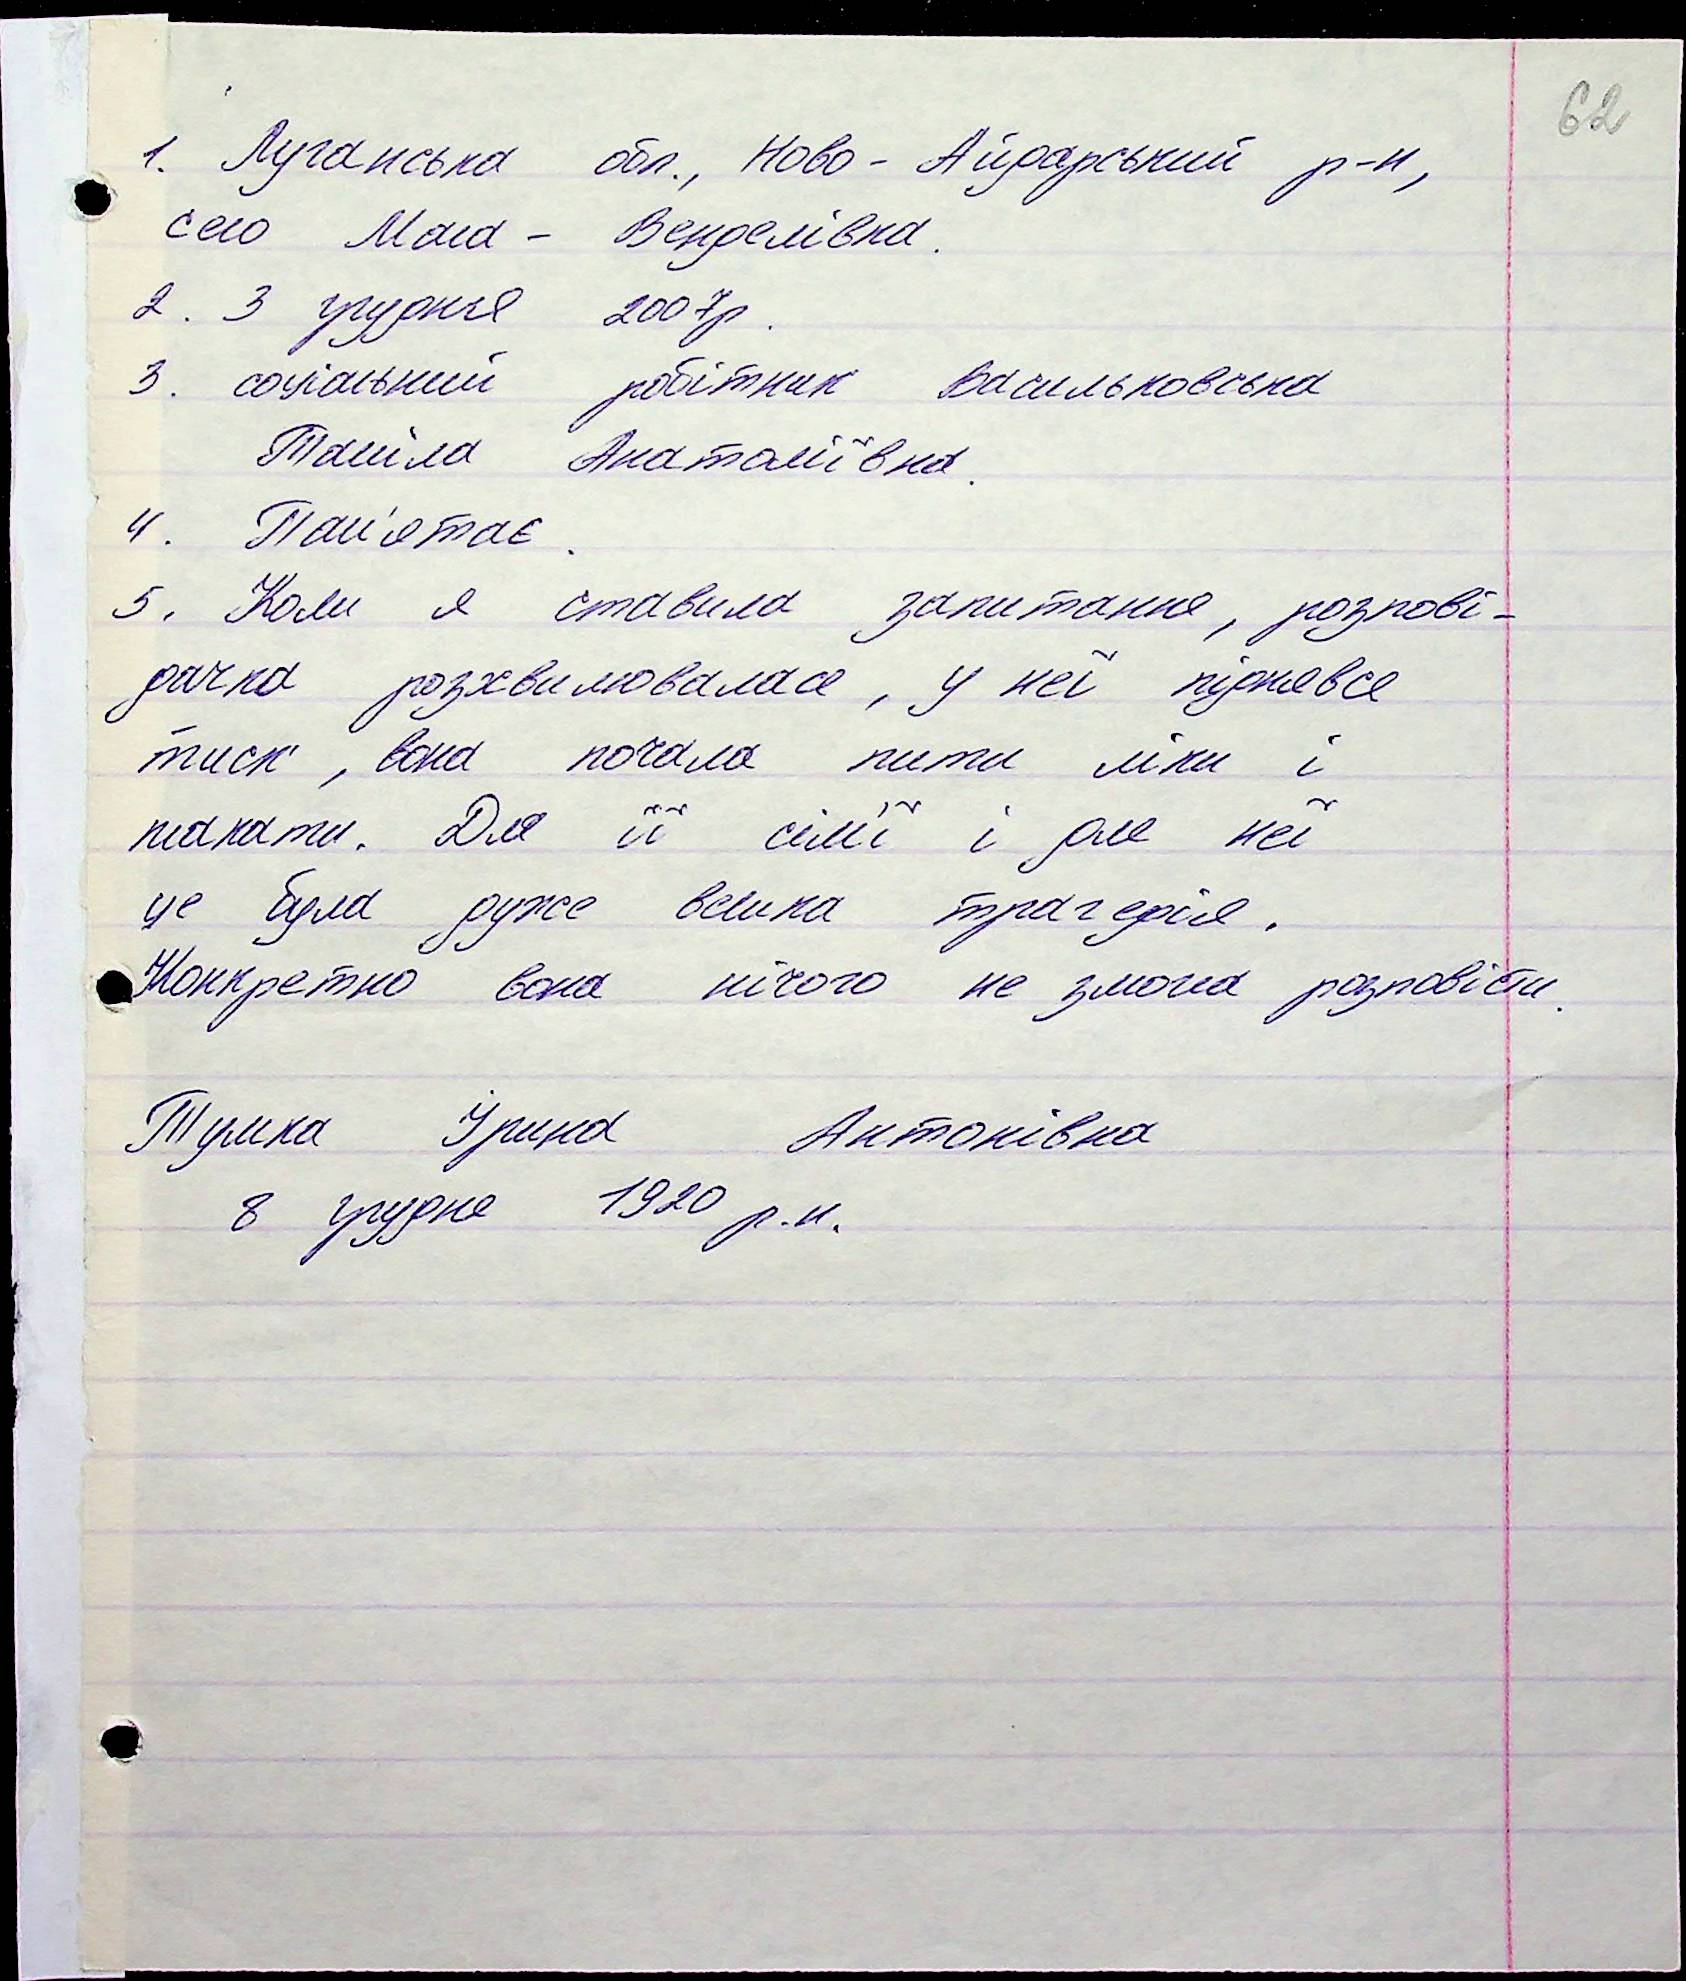 62
1. Луганська обл., Ново-Айдарський р-н,
село Мала - Венделівка.
2. 3 грудня 2007р.
3. соціальний робітник Васильковська
Таміла Анатоліївна.
4. Пам'ятає.
5. Коли я ставила запитання, розпові-
дачка розхвилювалася, у неї піднявся
тиск, вона почала пити ліки і
плакати. Для її сім'ї і для неї
це була дуже велика трагедія.
Конкретно вона нічого не змогла розповісти.
Тумка Ірина Антонівна
8 грудня 1920 р.н.